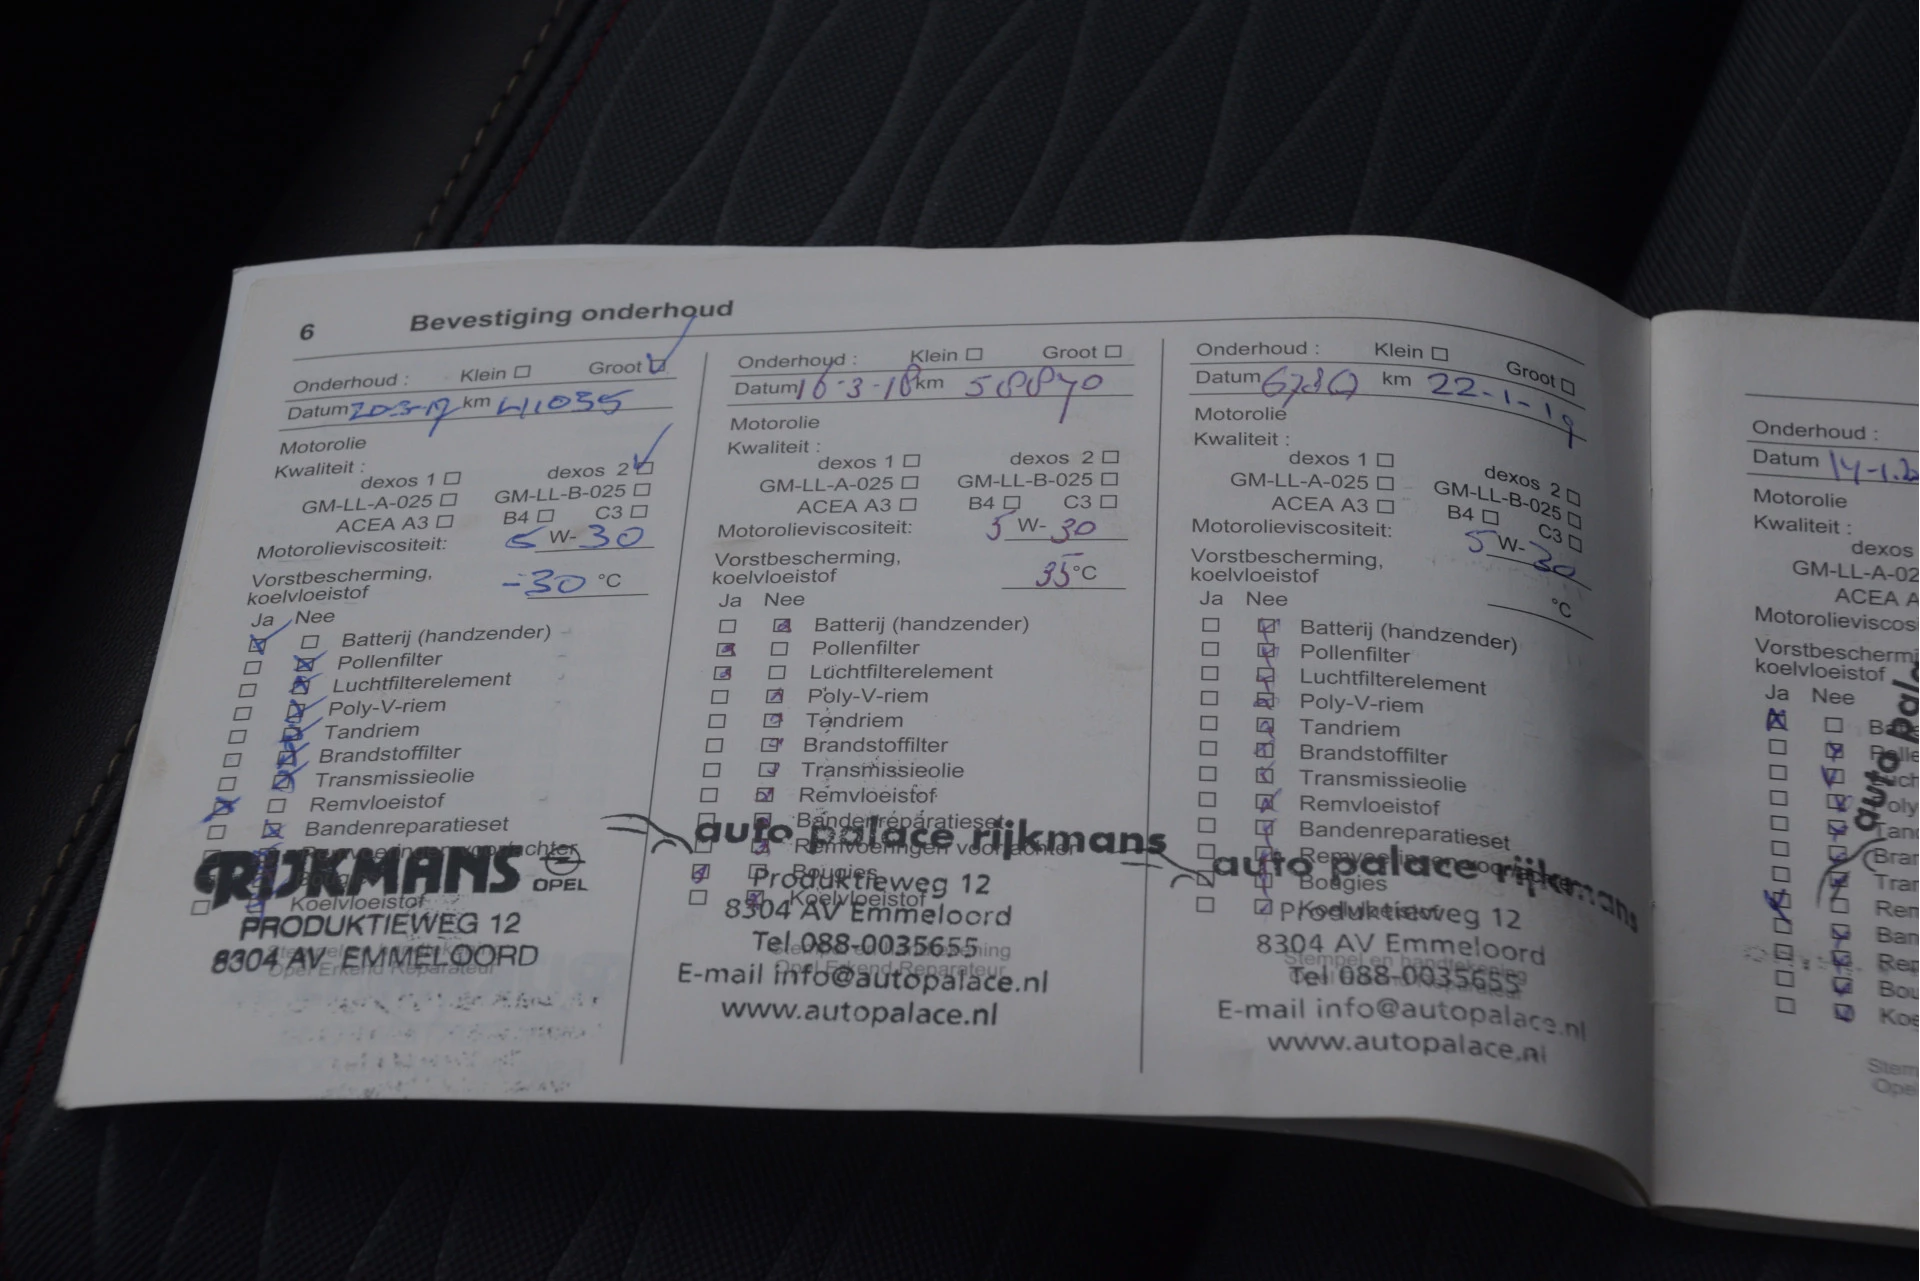 6 Bevestiging onderhoud
Onderhoud : Klein Groot
Datum 20-3-17 km 41035
Motorolie
Kwaliteit :
dexos 1 dexos 2
GM-LL-A-025 GM-LL-B-025
ACEA A3 B4 C3
Motorolieviscositeit: 5 W- 30
Vorstbescherming,
koelvloeistof -30 °C
Ja Nee
Batterij (handzender)
Pollenfilter
Luchtfilterelement
Poly-V-riem
Tandriem
Brandstoffilter
Transmissieolie
Remvloeistof
Bandenreparatieset
Koelvloeistof
RIJKMANS OPEL
PRODUKTIEWEG 12
8304 AV EMMELOORD
Stempel en handtekening
Opel Erkend Reparateur
Onderhoud : Klein Groot
Datum 16-3-18 km 50070
Motorolie
Kwaliteit :
dexos 1 dexos 2
GM-LL-A-025 GM-LL-B-025
ACEA A3 B4 C3
Motorolieviscositeit: 5 W- 30
Vorstbescherming,
koelvloeistof 35 °C
Ja Nee
Batterij (handzender)
Pollenfilter
Luchtfilterelement
Poly-V-riem
Tandriem
Brandstoffilter
Transmissieolie
Remvloeistof
Bandenreparatieset
auto palace rijkmans
Remvoeringen voor/achter
Bougies
Produktieweg 12
Koelvloeistof
8304 AV Emmeloord
Tel 088-0035655
Stempel en handtekening
Opel Erkend Reparateur
E-mail info@autopalace.nl
www.autopalace.nl
Onderhoud : Klein Groot
Datum km 22-1-19
Motorolie
Kwaliteit :
dexos 1 dexos 2
GM-LL-A-025 GM-LL-B-025
ACEA A3 B4 C3
Motorolieviscositeit: 5 W- 30
Vorstbescherming,
koelvloeistof °C
Ja Nee
Batterij (handzender)
Pollenfilter
Luchtfilterelement
Poly-V-riem
Tandriem
Brandstoffilter
Transmissieolie
Remvloeistof
Bandenreparatieset
Remvoeringen voor/achter
auto palace rijkmans
Bougies
Koelvloeistof
Produktieweg 12
8304 AV Emmeloord
Stempel en handtekening
Tel 088-0035655
E-mail info@autopalace.nl
www.autopalace.nl
Onderhoud :
Datum 14-1-2
Motorolie
Kwaliteit :
dexos
GM-LL-A-02
ACEA A
Motorolieviscosi
Vorstbescherm
koelvloeistof
Ja Nee
auto pala
Tand
Bran
Tran
Rem
Ban
Rem
Bou
Koe
Stem
Opel